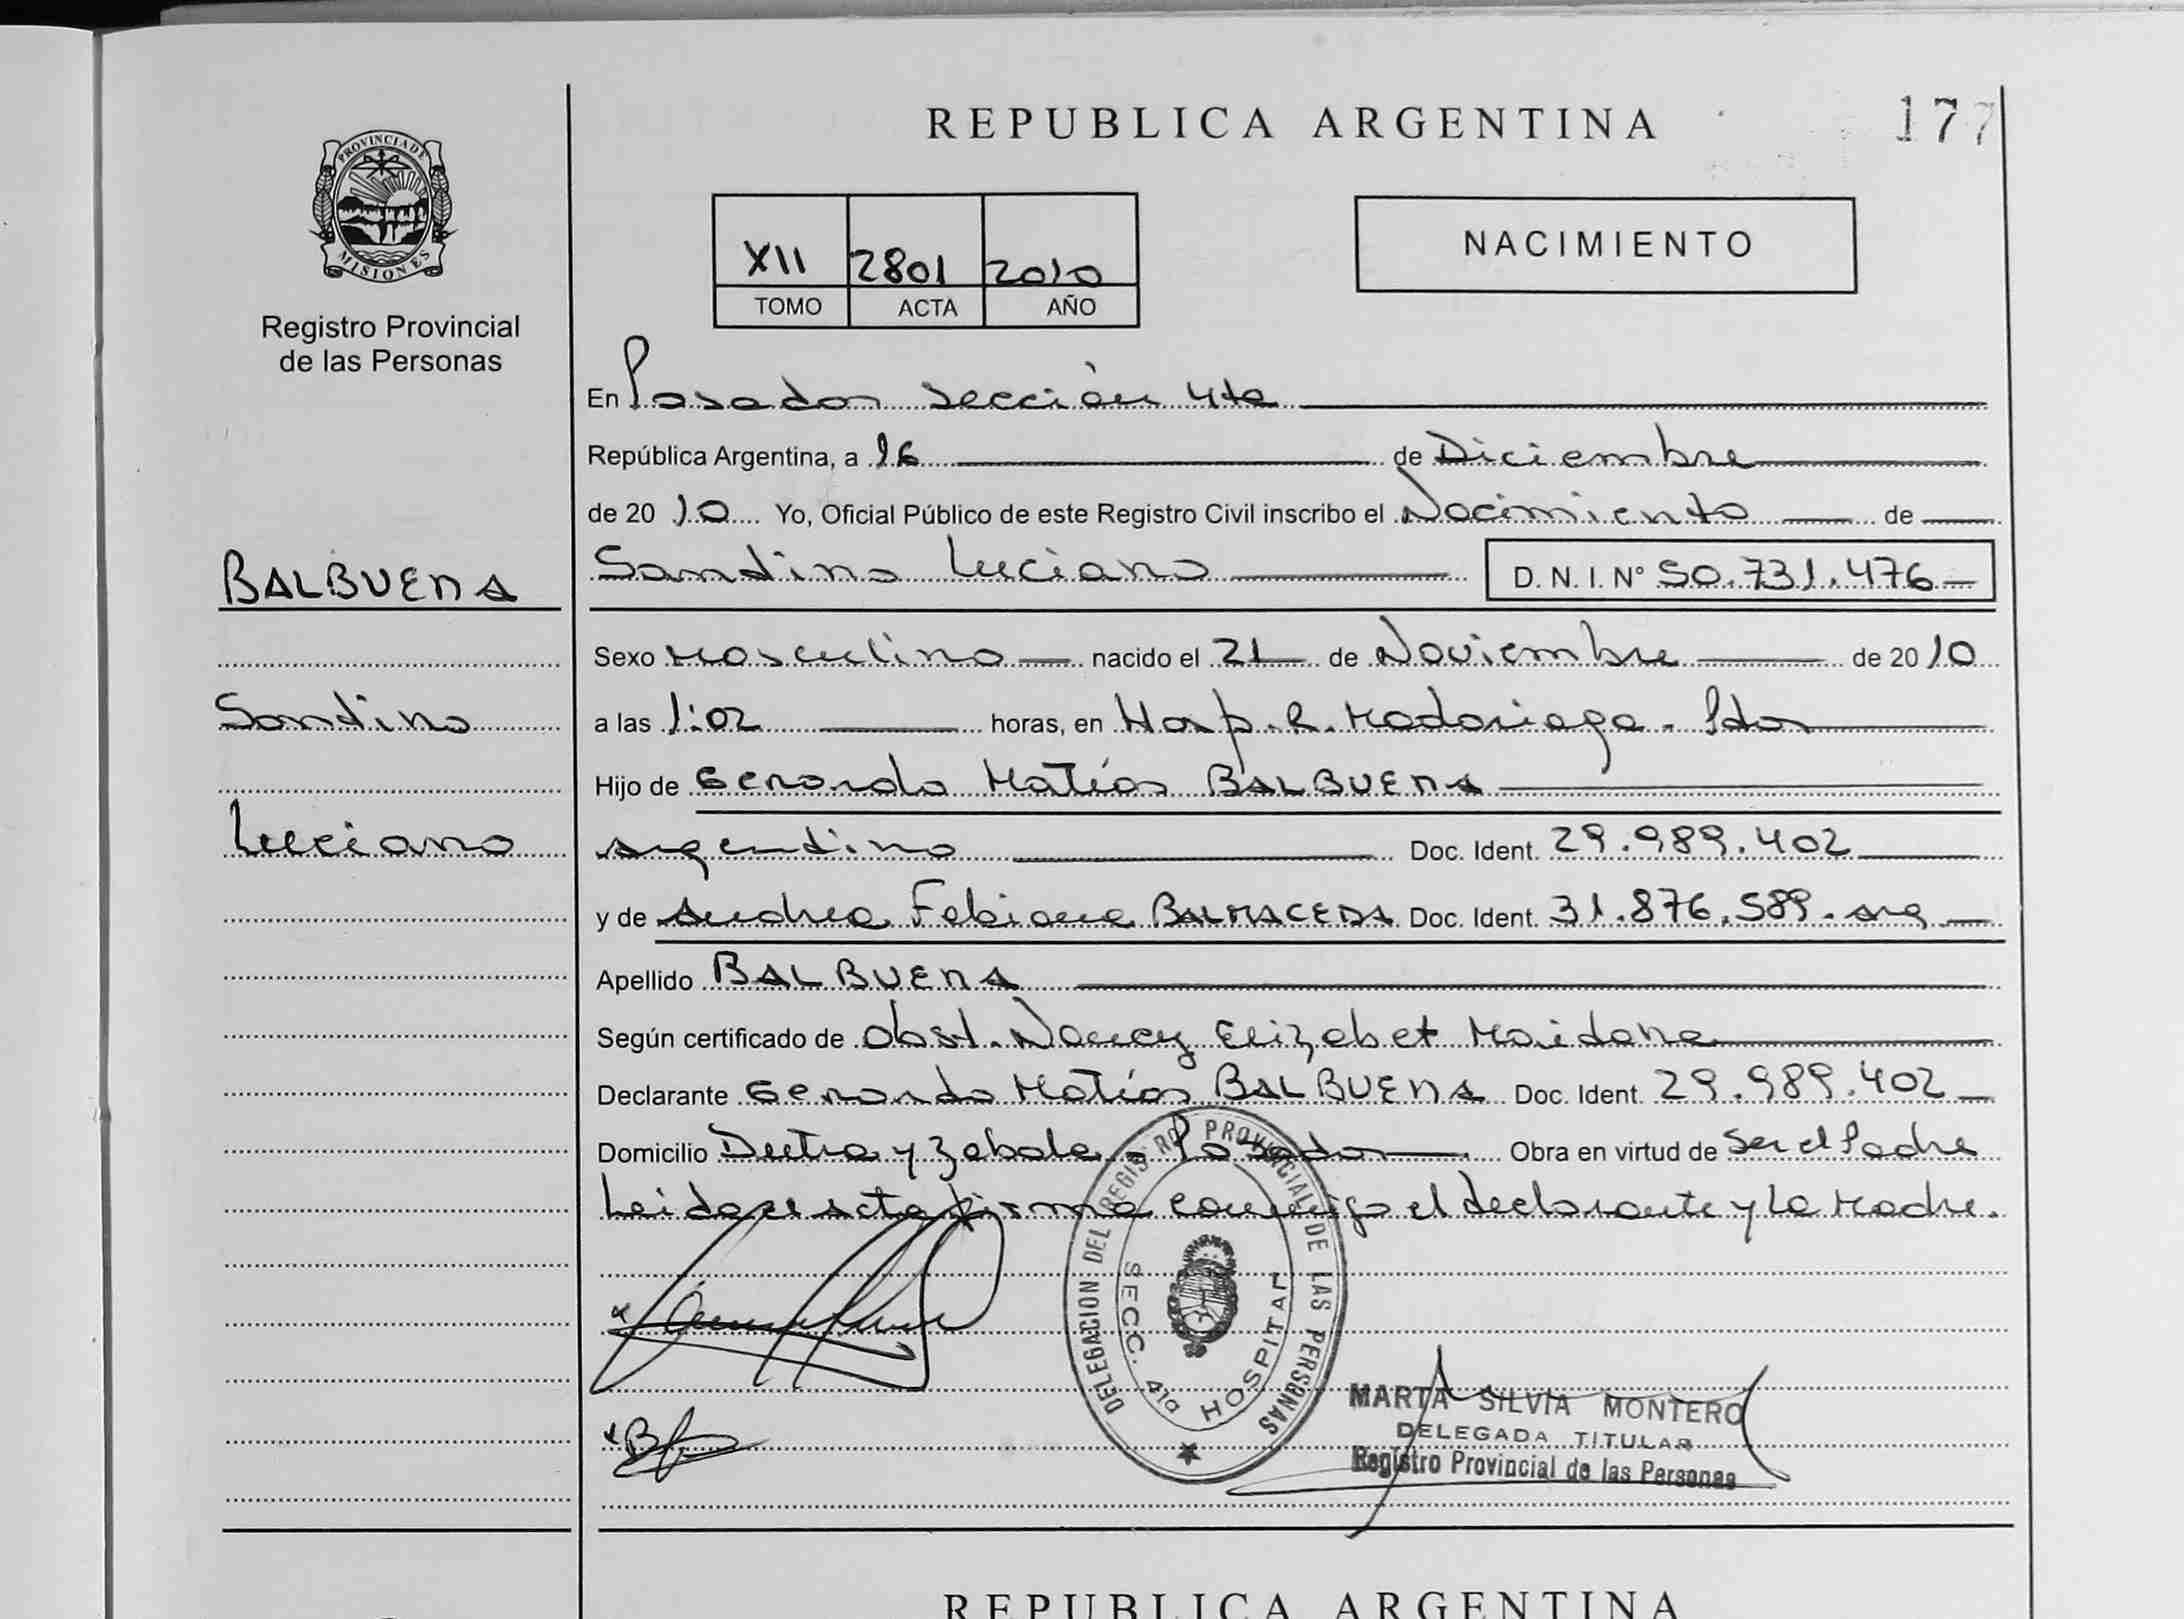 REPUBLICA ARGENTINA
177
PROVINCIA DE
MISIONES
Registro Provincial
de las Personas
XII 2801 2010
TOMO ACTA AÑO
NACIMIENTO
En Posadas sección 4ta
República Argentina, a 16 de Diciembre
de 2010 Yo, Oficial Público de este Registro Civil inscribo el Nacimiento de
BALBUENA
Sandino
Luciano
Sandino Luciano D. N. I. N° 50.731.476
Sexo Masculino nacido el 21 de Noviembre de 2010
a las 1:02 horas, en Hosp. R. Madariaga - Pdas
Hijo de Gerardo Matías BALBUENA
argentino Doc. Ident. 29.989.402
y de Andrea Fabiana BALMACEDA Doc. Ident. 31.876.589. arg
Apellido BALBUENA
Según certificado de Obst. Nancy Elizabet Maidana
Declarante Gerardo Matías BALBUENA Doc. Ident. 29.989.402
Domicilio Deutra y Zabala - Posadas Obra en virtud de Ser el Padre
Leida el acta firma conmigo el declarante y la Madre.
DELEGACION DEL REGISTRO PROVINCIAL DE LAS PERSONAS
SECC. 4ta HOSPITAL
MARTA SILVIA MONTERO
DELEGADA TITULAR
Registro Provincial de las Personas
REPUBLICA ARGENTINA